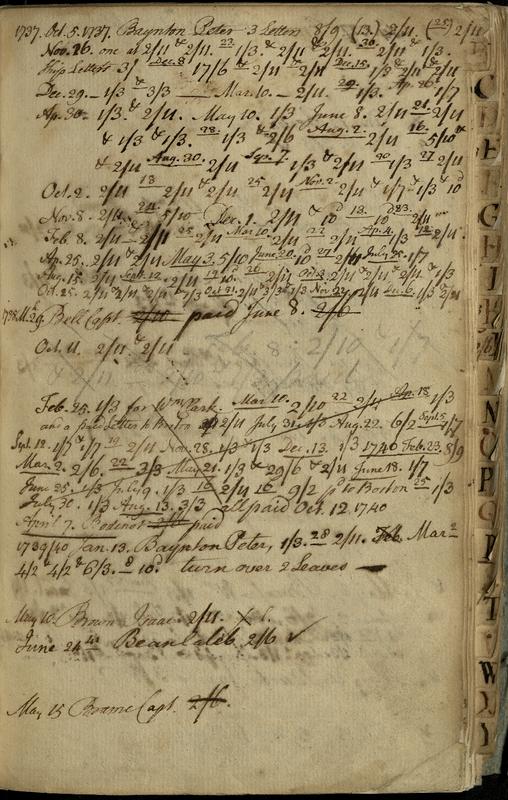 1737. Oct. 5. 1737. Baynton Peter 3 Letters 8/9 (13.) 2/11 (25) 2/11
Nov. 26. one at 2/11 & 2/11. 23 1/3. & 2/11 & 2/11 30. 2/11 & 1/3.
Ship Letters 3/ Dec. 8 17/6 & 2/11 & 2/11 Dec. 15 1/3 & 2/11 & 2/11
Dec. 29. 1/3 & 3/3 Mar. 10. 2/11. 29. 1/3. Ap. 26 1/7
Ap. 30. 1/3. & 2/11. May 10. 1/3 June 8. 2/11 21. 2/11
& 1/3. & 1/3. 28. 1/3 & 2/6 Aug. 2. 2/11 16. 5/10 &
& 2/11 Aug. 30. 2/11 Sep. 7. 1/3 & 2/11 20 1/3 27 2/11
Oct. 2. 2/11 13 2/11 & 2/11 25 2/11 Nov. 2 2/11 & 1/7 & 1/3 & 10d
Nov. 8. 2/11. 24 5/10 Dec. 1. 2/11 & 10d 13. 10 23. 2/11
Feb. 8. 2/11 & 2/11 25 2/11 Mar. 10 2/11 22 2/11 Ap. 4. 1/3 12 2/11
Ap. 25. 2/11 & 2/11 May 3. 5/10 June 20. 10d 27 2/11 July 25. 1/7
Aug. 15. 2/11 Sept. 12. 2/11 19 10d 26 2/11 Oct. 3. 2/11 & 2/11 & 2/11 & 1/3
Oct. 25. 2/11 & 2/11 & 2/11 & 1/3 Oct. 31. 2/11 1/3 Nov. 22. 2/11 Dec. 6. 1/3 2/11
Bell Capt. 2/10 paid June 8. 2/6
Oct. 11. 2/11 & 2/11
Feb. 25. 1/3 for Wm Park. Mar. 10. 2/10 22 2/11 Apr. 18 1/3
and a paid Letter to Boston 2/11 July 31. 1/3 Aug. 22. 6/2 Sept. 5 1/7
Sept. 12. 1/7 & 1/7 19 2/11 Nov. 28. 1/3 & 1/3 Dec. 13. 1/3 1740 Feb. 23. 8/9
Mar. 2. 2/6. 22 3/3 May 21. 1/3 & 29/6 & 2/11 June 18. 1/7
June 25. 1/3 July 9. 1/3 16 2/11 16 9/2 pd to Boston 25 1/3
July 30. 1/3 Aug. 13. 3/3 all paid Oct. 12. 1740
April 7. 2/6 paid
1739/40 Jan. 13. Baynton Peter, 1/3. 28 2/11. Feb. Mar. 2
4/2 & 4/2 & 6/3. 8 10d. turn over 2 Leaves
May 10. Brown Isaac 2/11. X
June 24th Bean Caleb 2/6 ✓
May 15 Brame Capt. 2/6.
C
E
G
H
I
N
O
P
T
W